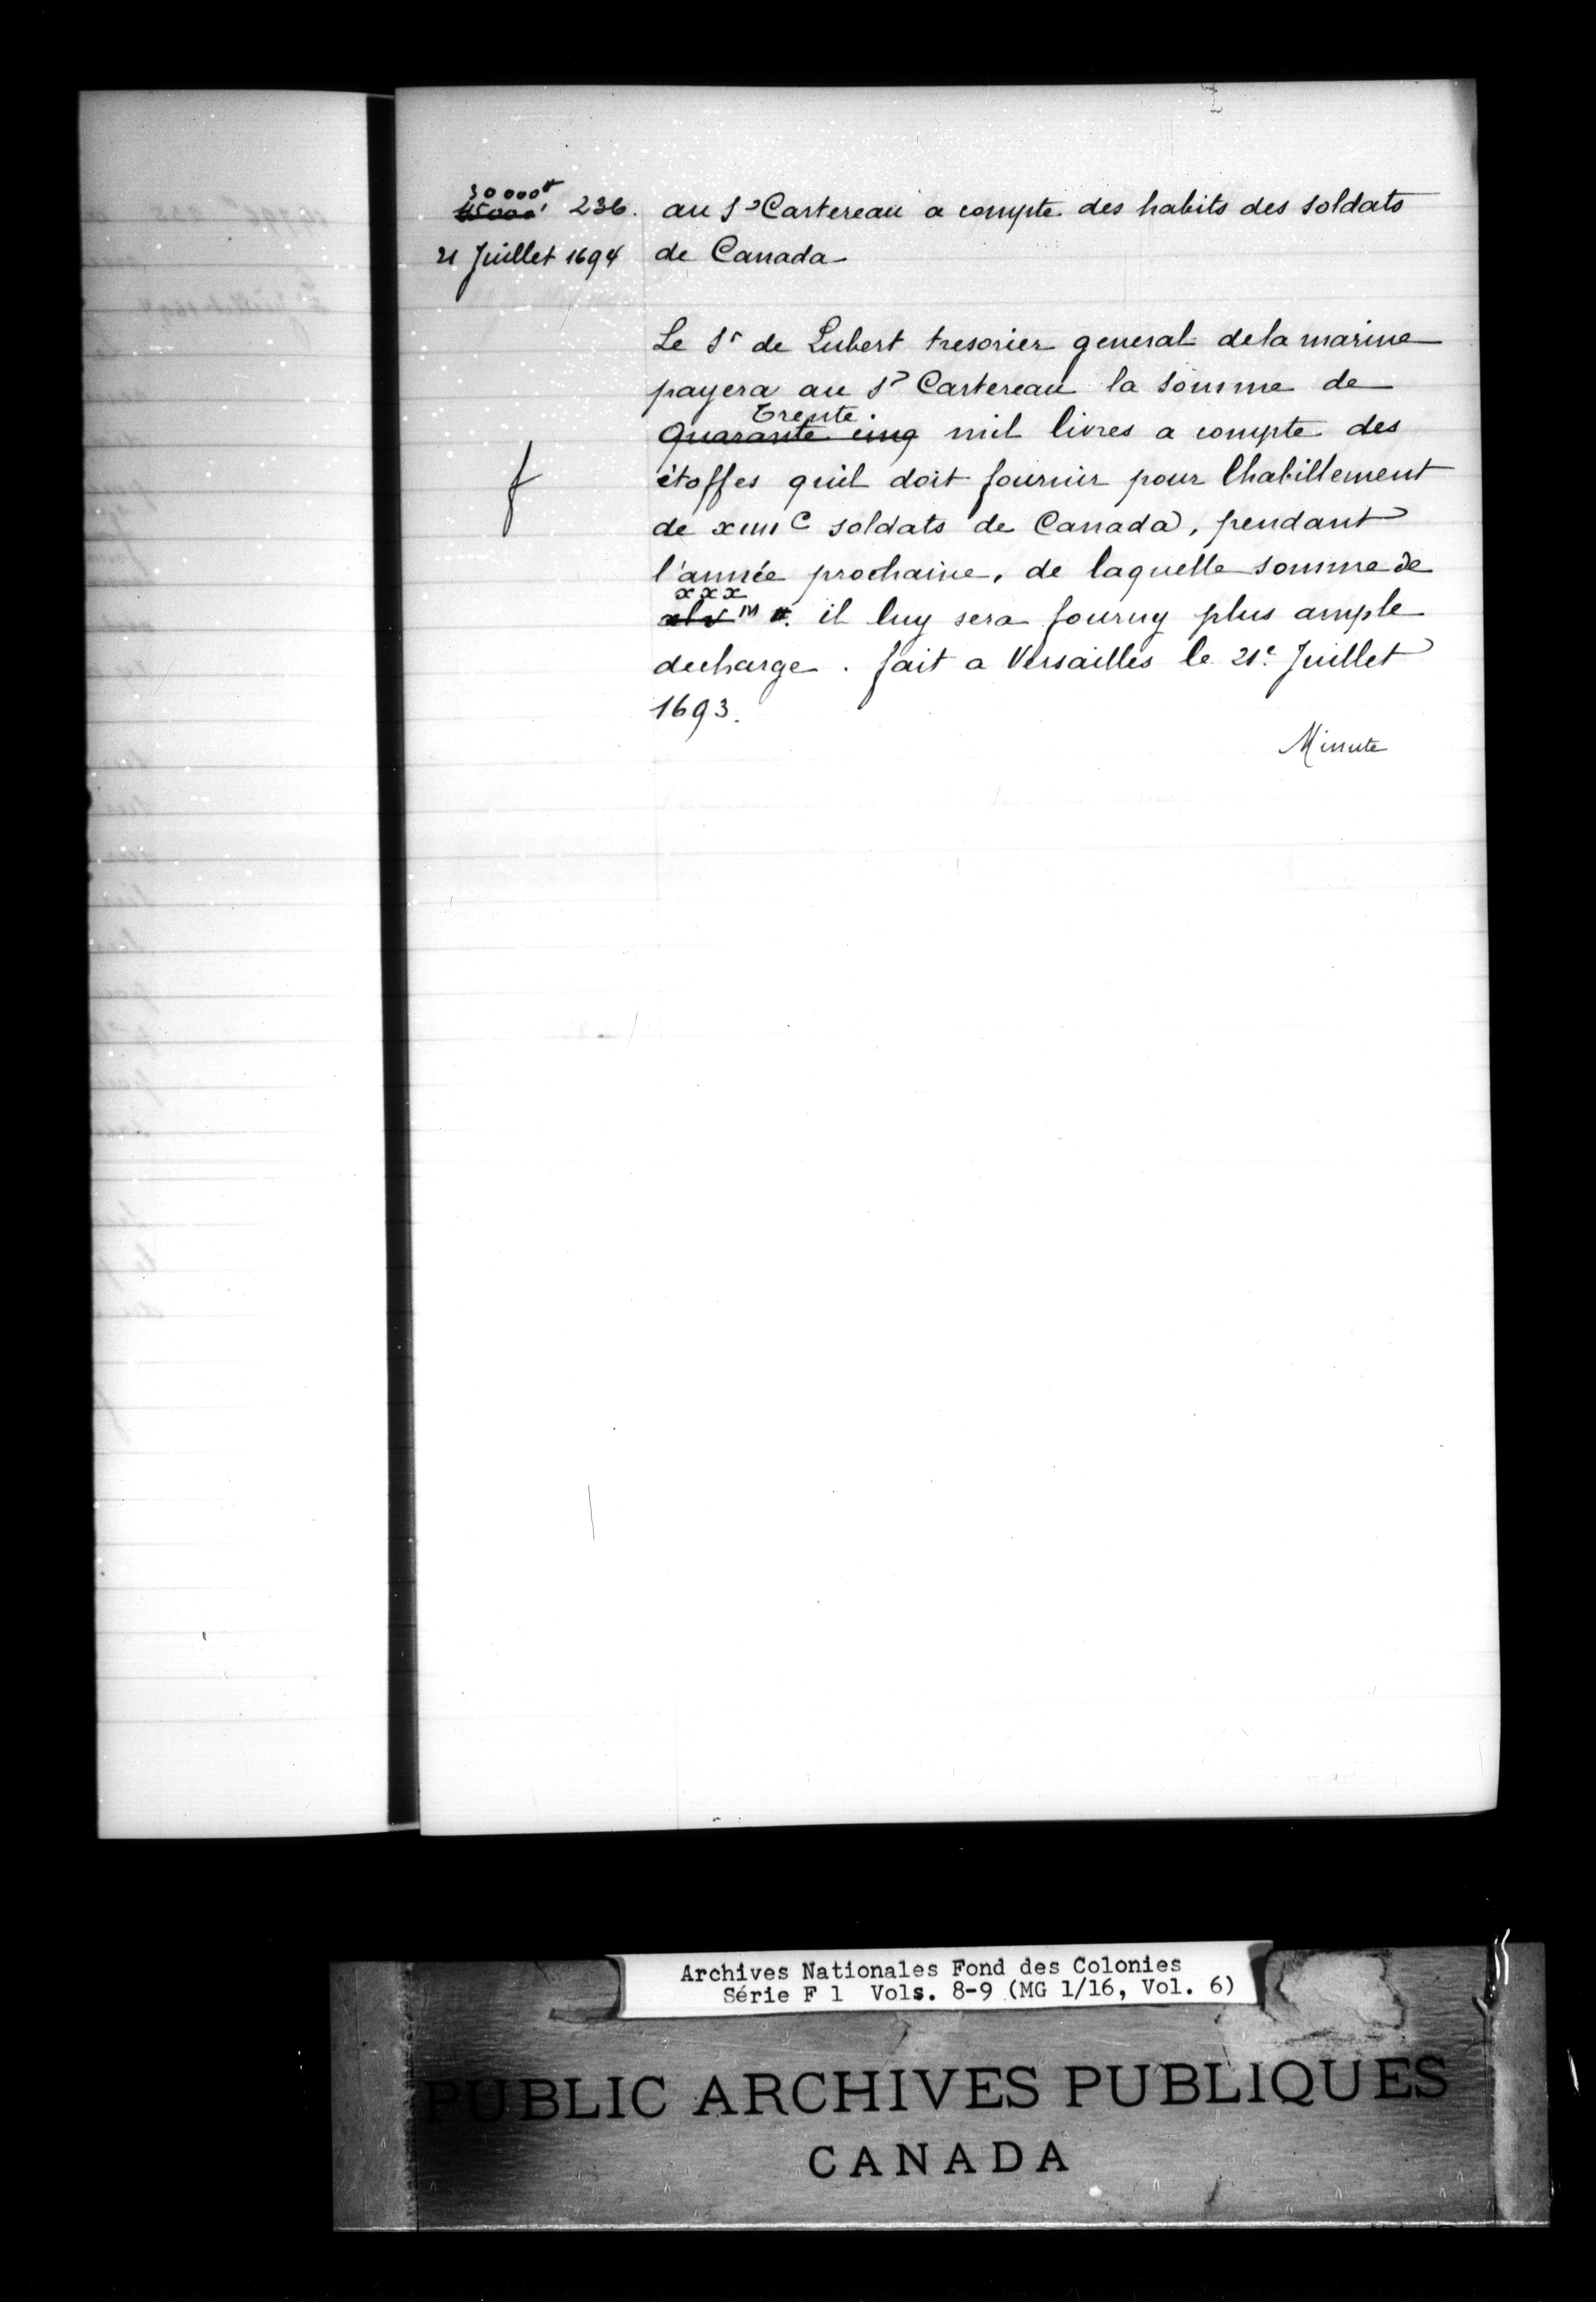 30 000 ₶
45000 ₶ 236. au Sr Cartereau a compte des habits des soldats
21 Juillet 1694 de Canada
Le Sr de Lubert tresorier general dela marine
payera au Sr Cartereau la somme de
Trente
Quarante cinq mil livres a compte des
étoffes quil doit fournir pour lhabillement
de xiiii C soldats de Canada, pendant
l'année prochaine, de laquelle somme de
xxx
xlv M ₶. il luy sera fourny plus ample
decharge. fait a Versailles le 21e Juillet
1693.
Minute
Archives Nationales Fond des Colonies
Série F 1 Vols. 8-9 (MG 1/16, Vol. 6)
PUBLIC ARCHIVES PUBLIQUES
CANADA